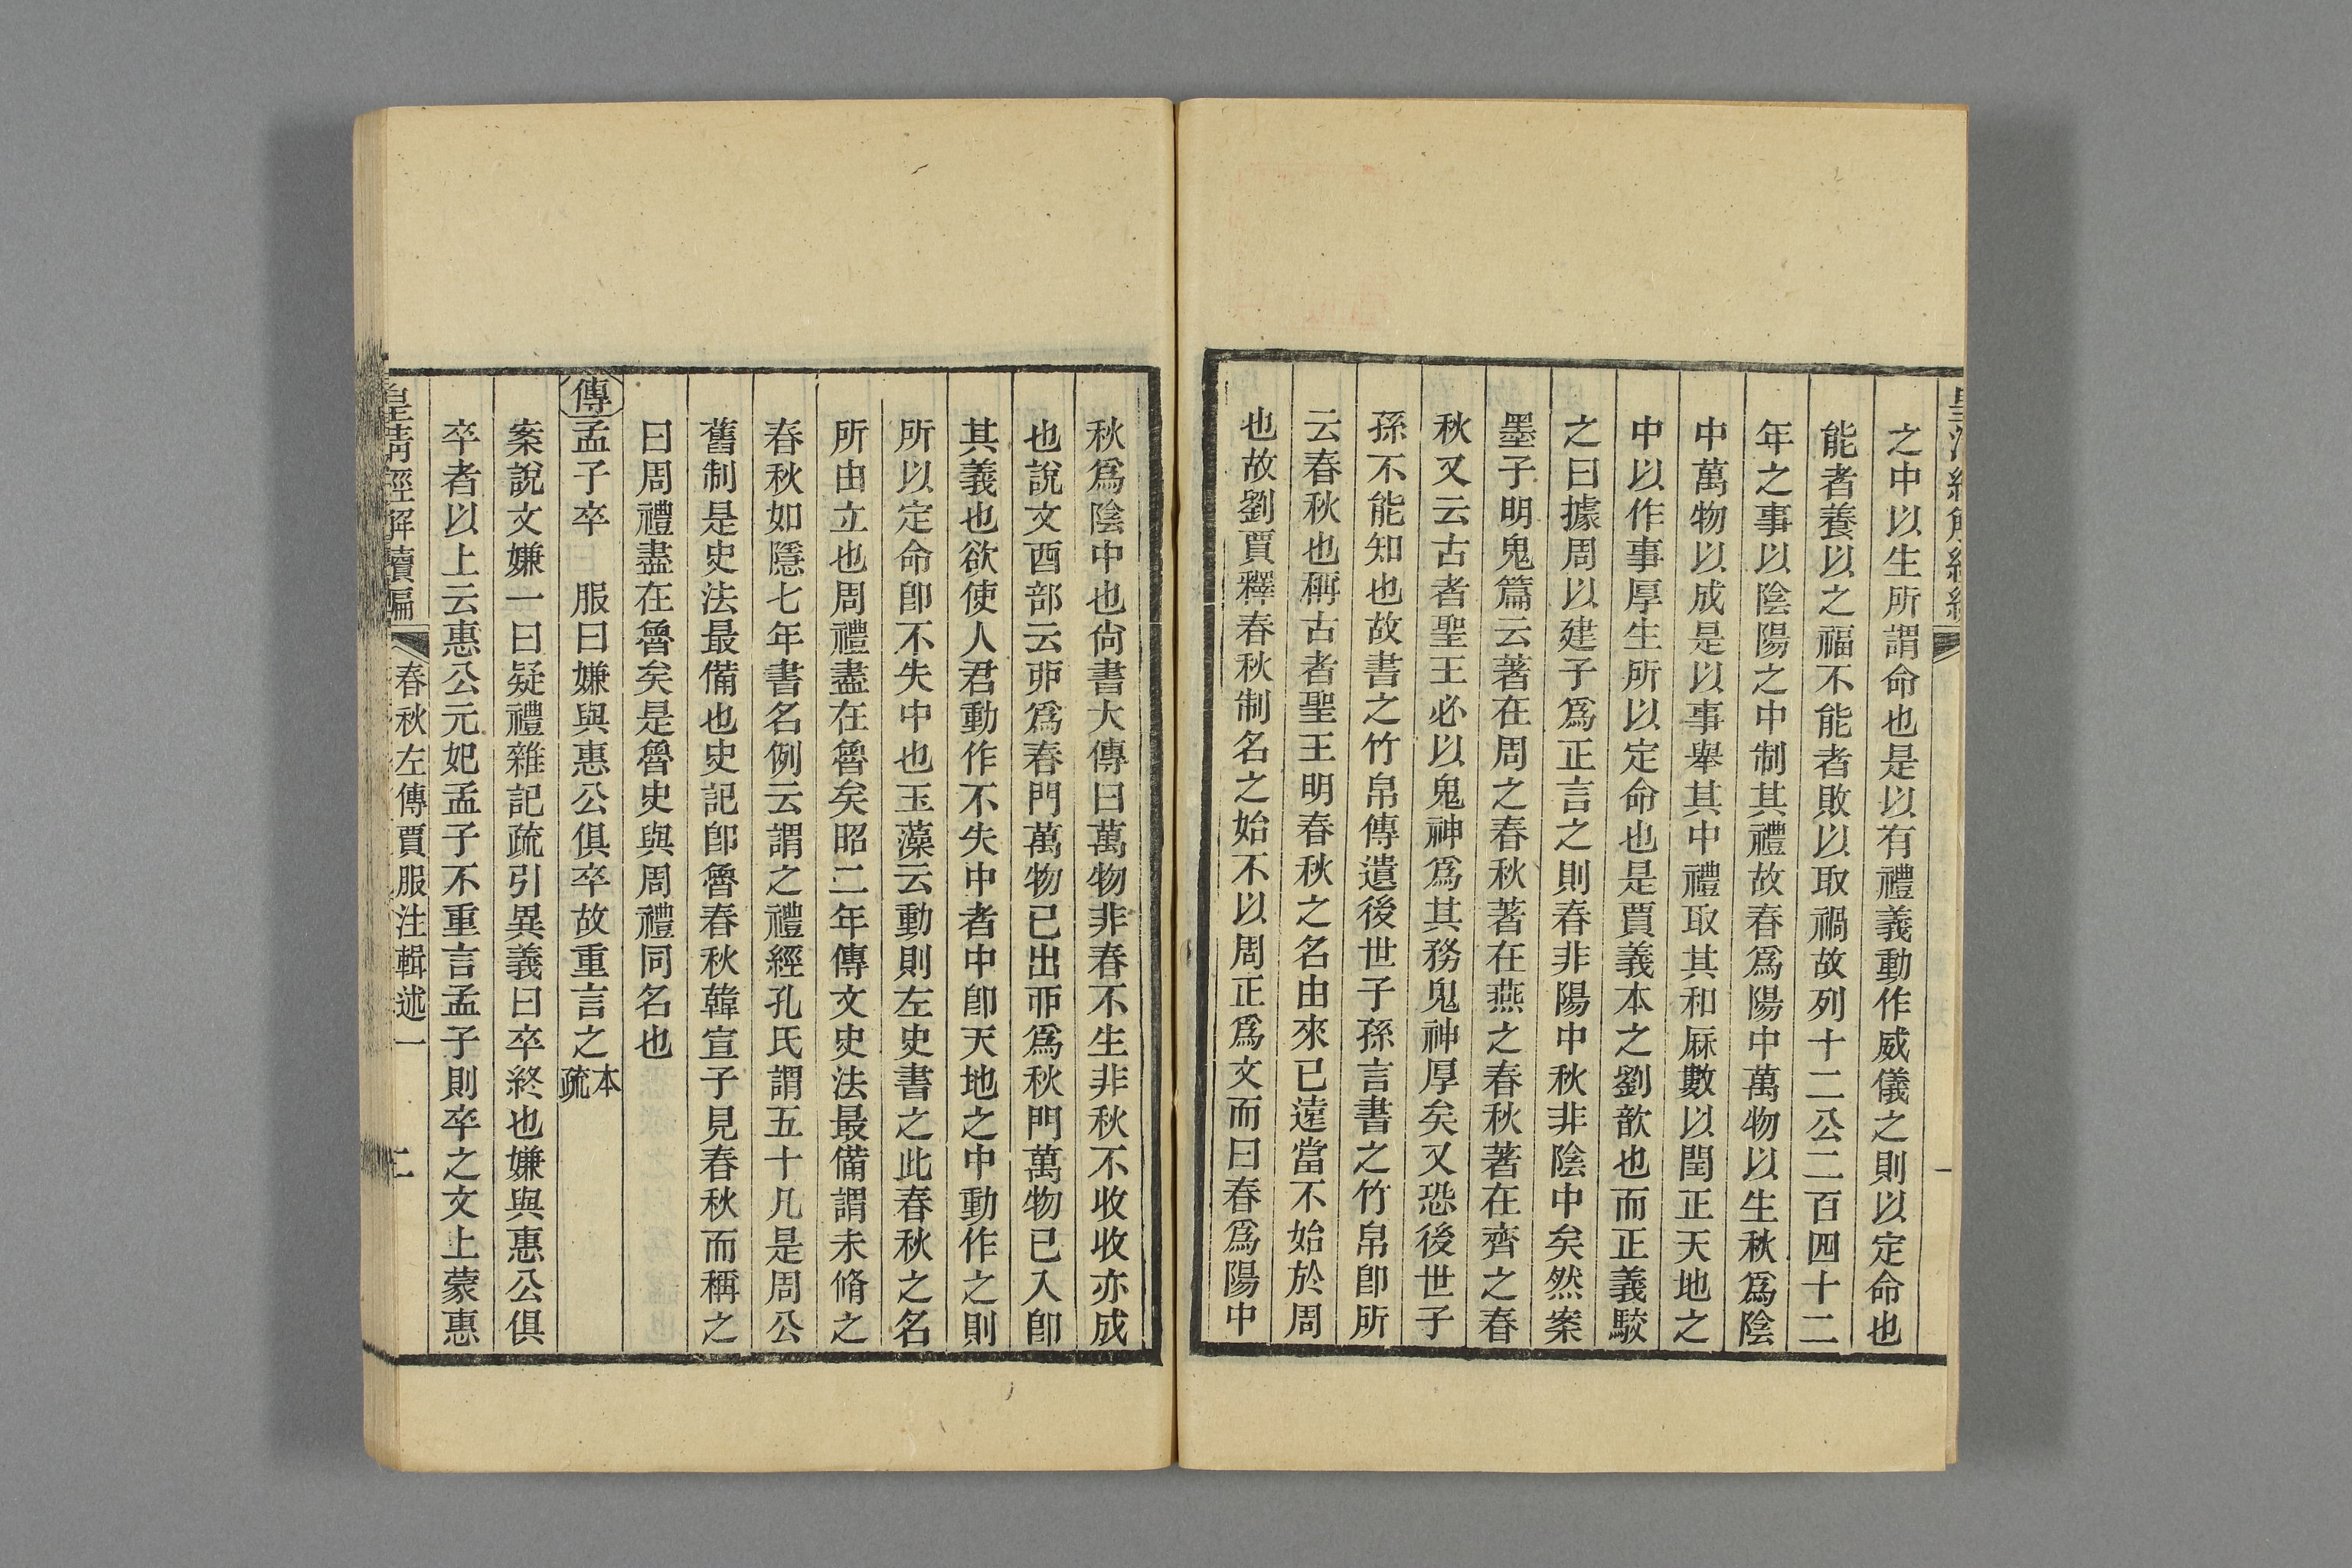 之中以生所謂命也是以有禮義動作威儀之則以定命也
能者養以之福不能者敗以取禍故列十二公二百四十二
年之事以陰陽之中制其禮故春爲陽中萬物以生秋爲陰
中萬物以成是以事舉其中禮取其和厤數以閏正天地之
中以作事厚生所以定命也是賈義本之劉歆也而正義駮
之曰據周以建子爲正言之則春非陽中秋非陰中矣然案
墨子明鬼篇云著在周之春秋著在燕之春秋著在齊之春
秋又云古者聖王必以鬼神爲其務鬼神厚矣又恐後世子
孫不能知也故書之竹帛傳遺後世子孫言書之竹帛卽所
云春秋也稱古者聖王明春秋之名由來已遠當不始於周
也故劉賈釋春秋制名之始不以周正爲文而曰春爲陽中
秋爲陰中也尙書大傳曰萬物非春不生非秋不收收亦成
也說文酉部云丣爲春門萬物已出丣爲秋門萬物已入卽
其義也欲使人君動作不失中者中卽天地之中動作之則
所以定命卽不失中也玉藻云動則左史書之此春秋之名
所由立也周禮盡在魯矣昭二年傳文史法最備謂未脩之
春秋如隱七年書名例云謂之禮經孔氏謂五十凡是周公
舊制是史法最備也史記卽魯春秋韓宣子見春秋而稱之
曰周禮盡在魯矣是魯史與周禮同名也
傳孟子卒 服曰嫌與惠公俱卒故重言之本疏
案說文嫌一曰疑禮雜記疏引異義曰卒終也嫌與惠公俱
卒者以上云惠公元妃孟子不重言孟子則卒之文上蒙惠
皇淸經解續編 春秋左傳賈服注輯述一 二